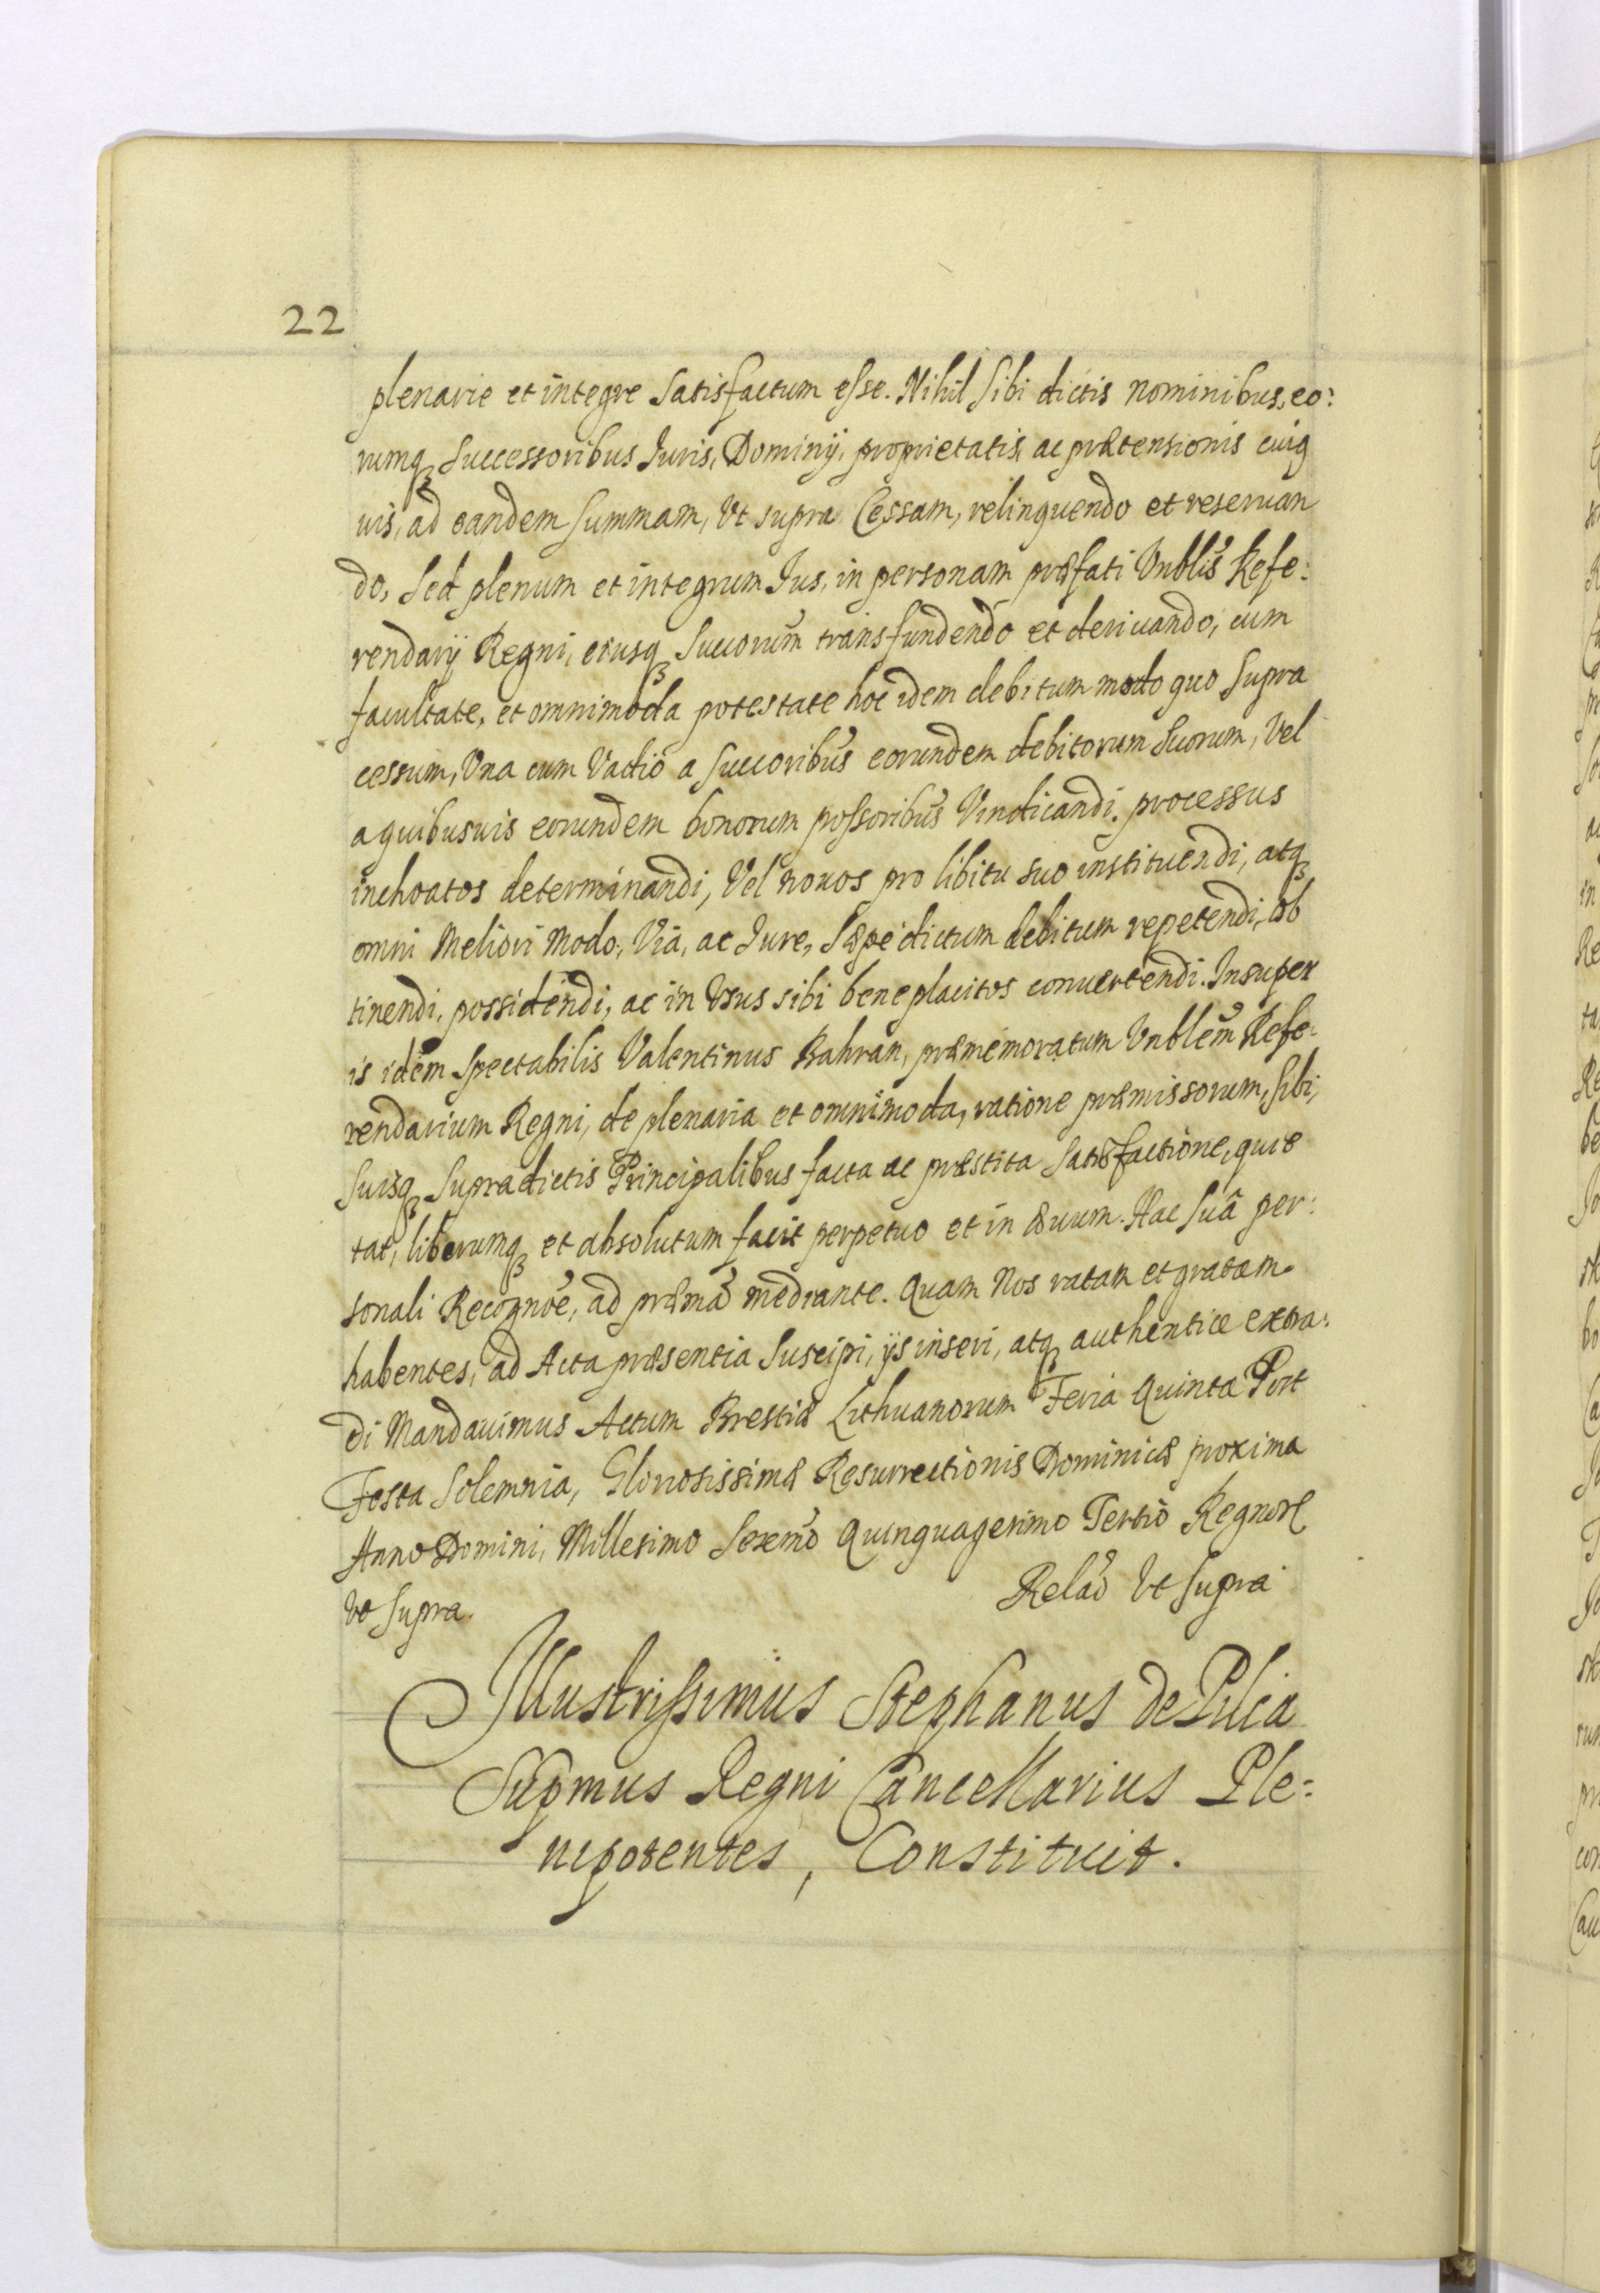 22
plenarie et integre Satisfactum esse. Nihil Sibi dictis nominibus, eo:
rumq Successoribus Juris, Dominij, proprietatis, ac prætensionis cuiq
uis, ad eandem Summam, Vt supra Cessam, relinquendo et reseruan
do, Sed plenum et integrum Jus, in personam præfati Vnblis Refe:
rendarij Regni, eiusq Succorum transfundendo et deriuando, cum
facultate, et omnimoda potestate hoc idem debitum modo quo Supra
cessum, Vna cum Vadio a Succoribus eorundem debitorum Suorum, Vel
a quibusuis eorundem bonorum possoribus Vindicandi, processus
inchoatos determinandi, Vel nouos pro libitu suo instituendi, atq
omni Meliori Modo, Via, ac Jure, Sæpe dictum debitum repetendi, ob
tinendi, possidendi, ac in Vsus sibi beneplacitos conuertendi. Insuper
is idem Spectabilis Valentinus Bahran, præmemoratum Vnblem Refe:
rendarium Regni, de plenaria et omnimoda, ratione præmissorum, Sibi,
Suisq Supradictis Principalibus facta ac præstita Satisfactione, quie
tat, liberumq et absolutum facit perpetuo et in æuum. Hac Suâ per:
sonali Recognõe, ad præmã mediante. Quam Nos ratam et gratam
habentes, ad Acta præsentia Suscipi, ijs inseri, atq authentice extra:
di Mandauimus Actum Brestiæ Lithuanorum Feria Quinta Post
Festa Solemnia, Gloriosissimæ Resurrectionis Dominicæ proxima
Anno Domini, Millesimo Sexmo Quinquagesimo Tertio Regnor
Vt Supra. Relaõ Vt Supra
Illustrissimus Stephanus de Pilca
Supmus Regni Cancellarius Ple:
nipotentes, Constituit.